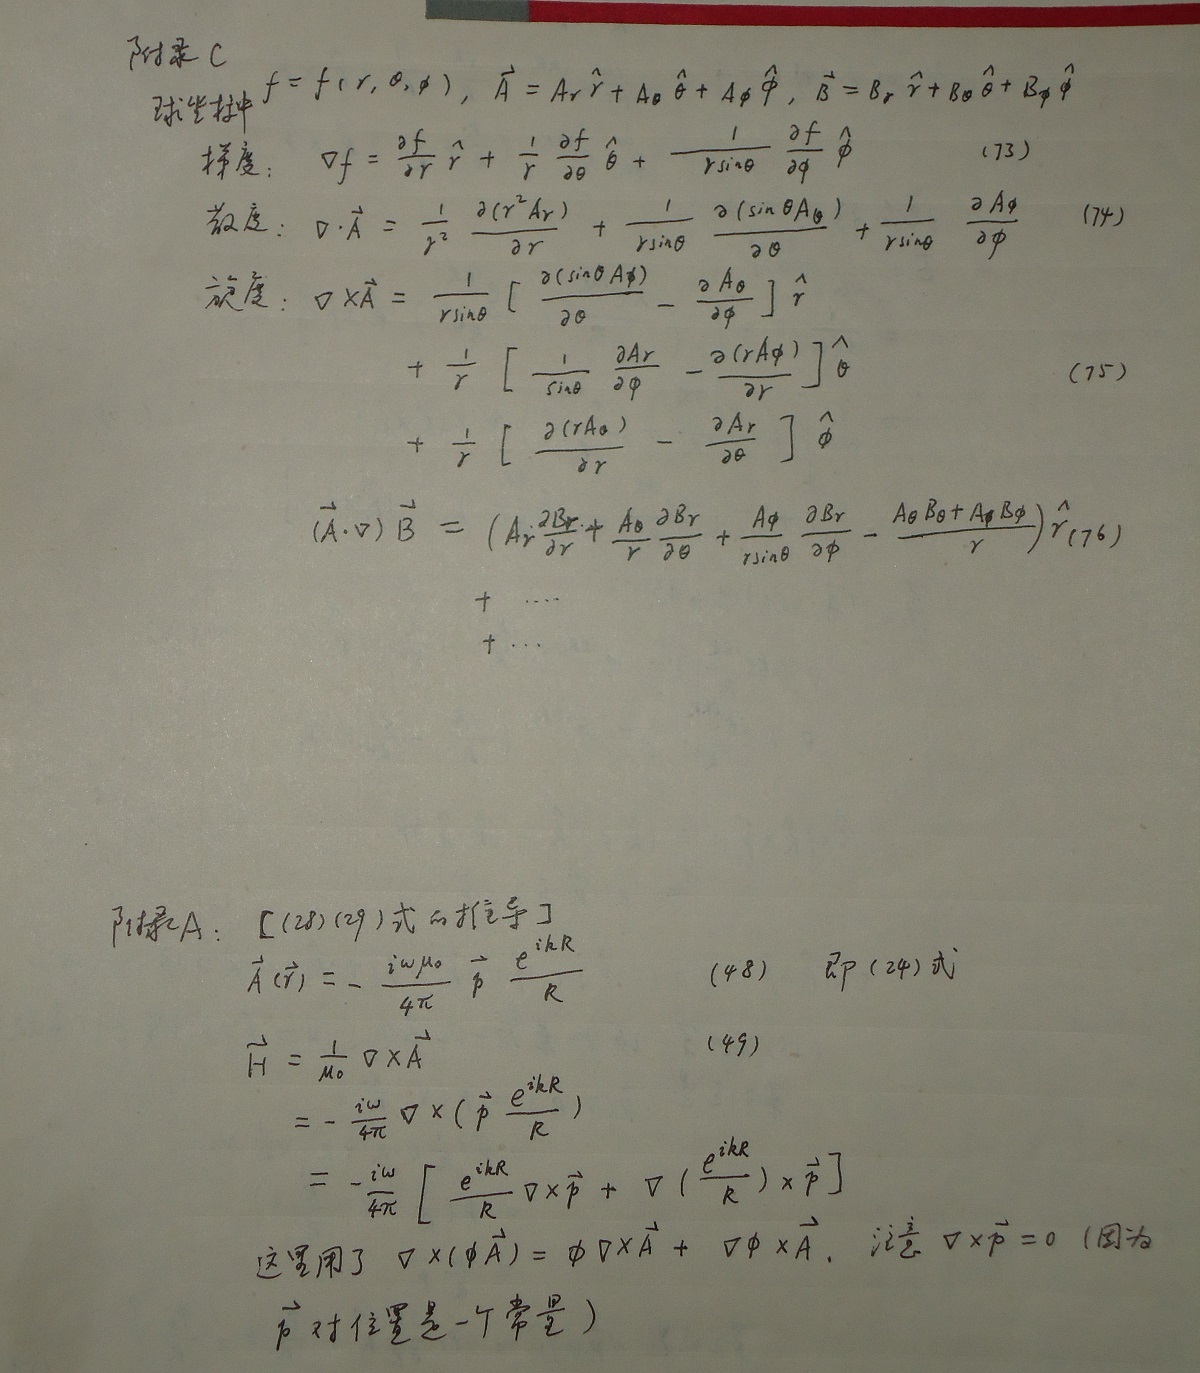 附录C
球坐标中 f = f(r, θ, φ), A⃗ = A_r r̂ + A_θ θ̂ + A_φ φ̂, B⃗ = B_r r̂ + B_θ θ̂ + B_φ φ̂
梯度: ∇f = ∂f/∂r r̂ + 1/r ∂f/∂θ θ̂ + 1/(r sinθ) ∂f/∂φ φ̂ (73)
散度: ∇·A⃗ = 1/r² ∂(r²A_r)/∂r + 1/(r sinθ) ∂(sinθA_θ)/∂θ + 1/(r sinθ) ∂A_φ/∂φ (74)
旋度: ∇×A⃗ = 1/(r sinθ) [∂(sinθ A_φ)/∂θ − ∂A_θ/∂φ] r̂
+ 1/r [1/sinθ ∂A_r/∂φ − ∂(rA_φ)/∂r] θ̂ (75)
+ 1/r [∂(rA_θ)/∂r − ∂A_r/∂θ] φ̂
(A⃗·∇)B⃗ = (A_r ∂B_r/∂r + A_θ/r ∂B_r/∂θ + A_φ/(r sinθ) ∂B_r/∂φ − (A_θB_θ + A_φB_φ)/r) r̂ (76)
+ ....
+ ...
附录A: [(28)(29)式的推导]
A⃗(r⃗) = − iωμ₀/4π p⃗ e^{ikR}/R (48) 即(24)式
H⃗ = 1/μ₀ ∇×A⃗ (49)
= − iω/4π ∇×(p⃗ e^{ikR}/R)
= − iω/4π [e^{ikR}/R ∇×p⃗ + ∇(e^{ikR}/R)×p⃗]
这里用了 ∇×(φA⃗) = φ∇×A⃗ + ∇φ×A⃗. 注意 ∇×p⃗ = 0 (因为
p⃗ 对位置是一个常量)